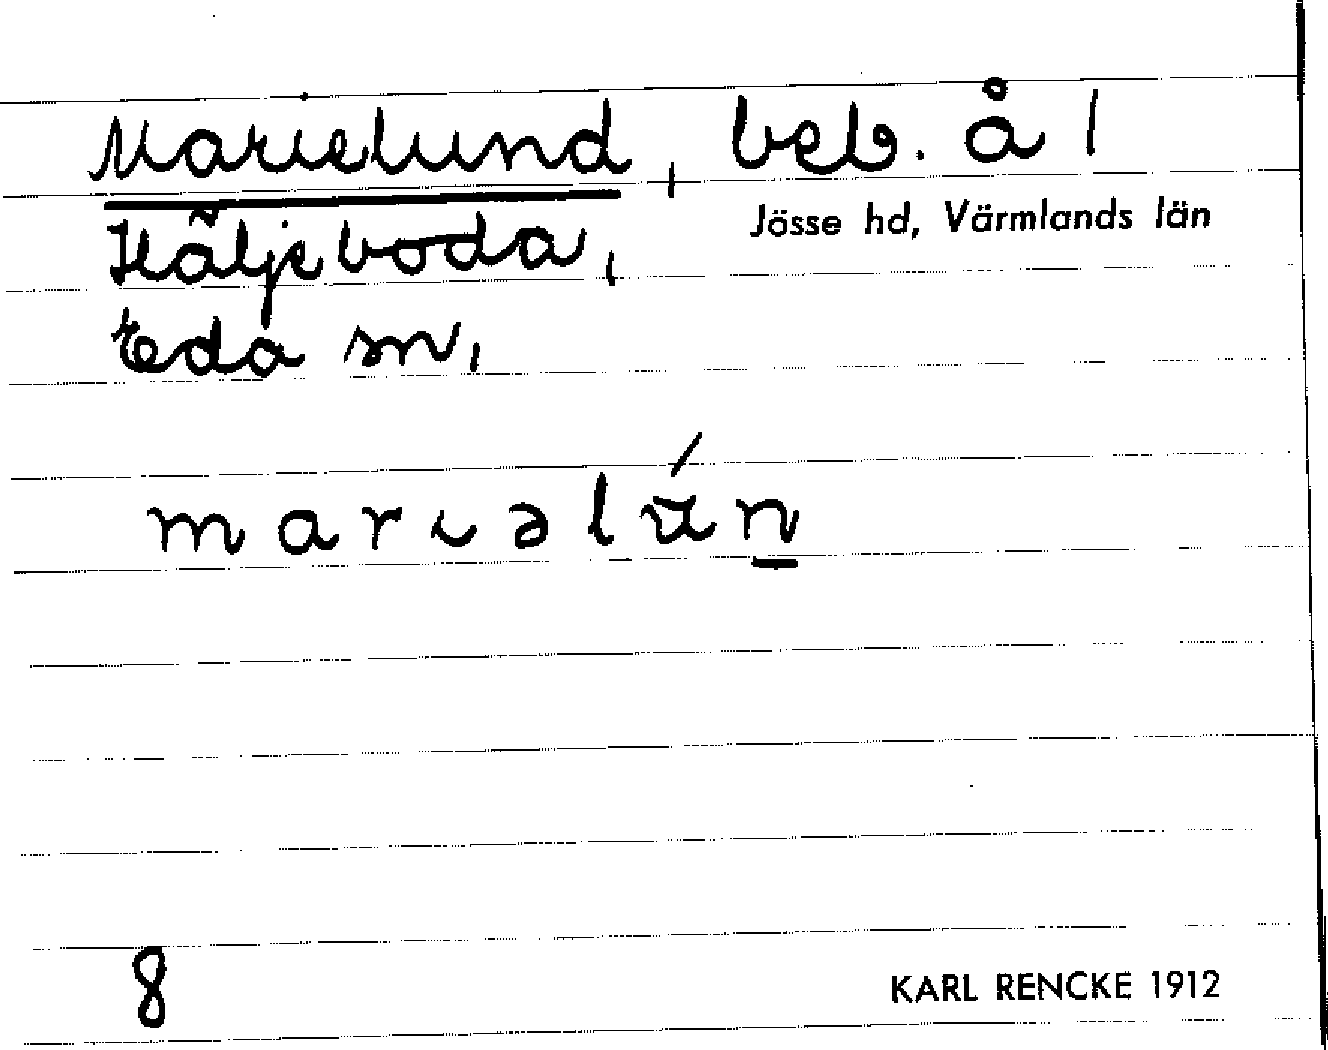 Marielund, beb. å 1
Jösse hd, Värmlands län
Häljeboda,
Eda sn,
mariəlún
8
KARL RENCKE 1912